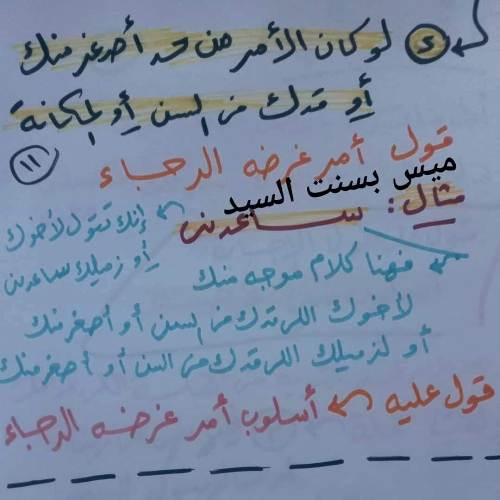 ٢ لو كان الأمر من حد أصغر منك
أو قدك من السن أو المكانة
قول أمر غرضه الرجاء ١١
ميس بسنت السيد
مثال: ساعدني ← إنك تقول لأخوك
أو زميلك ساعدني
فهنا كلام موجه منك
لأخوك اللي قدك من السن أو أصغر منك
أو لزميلك اللي قدك من السن أو أصغر منك
قول عليه ← أسلوب أمر غرضه الرجاء